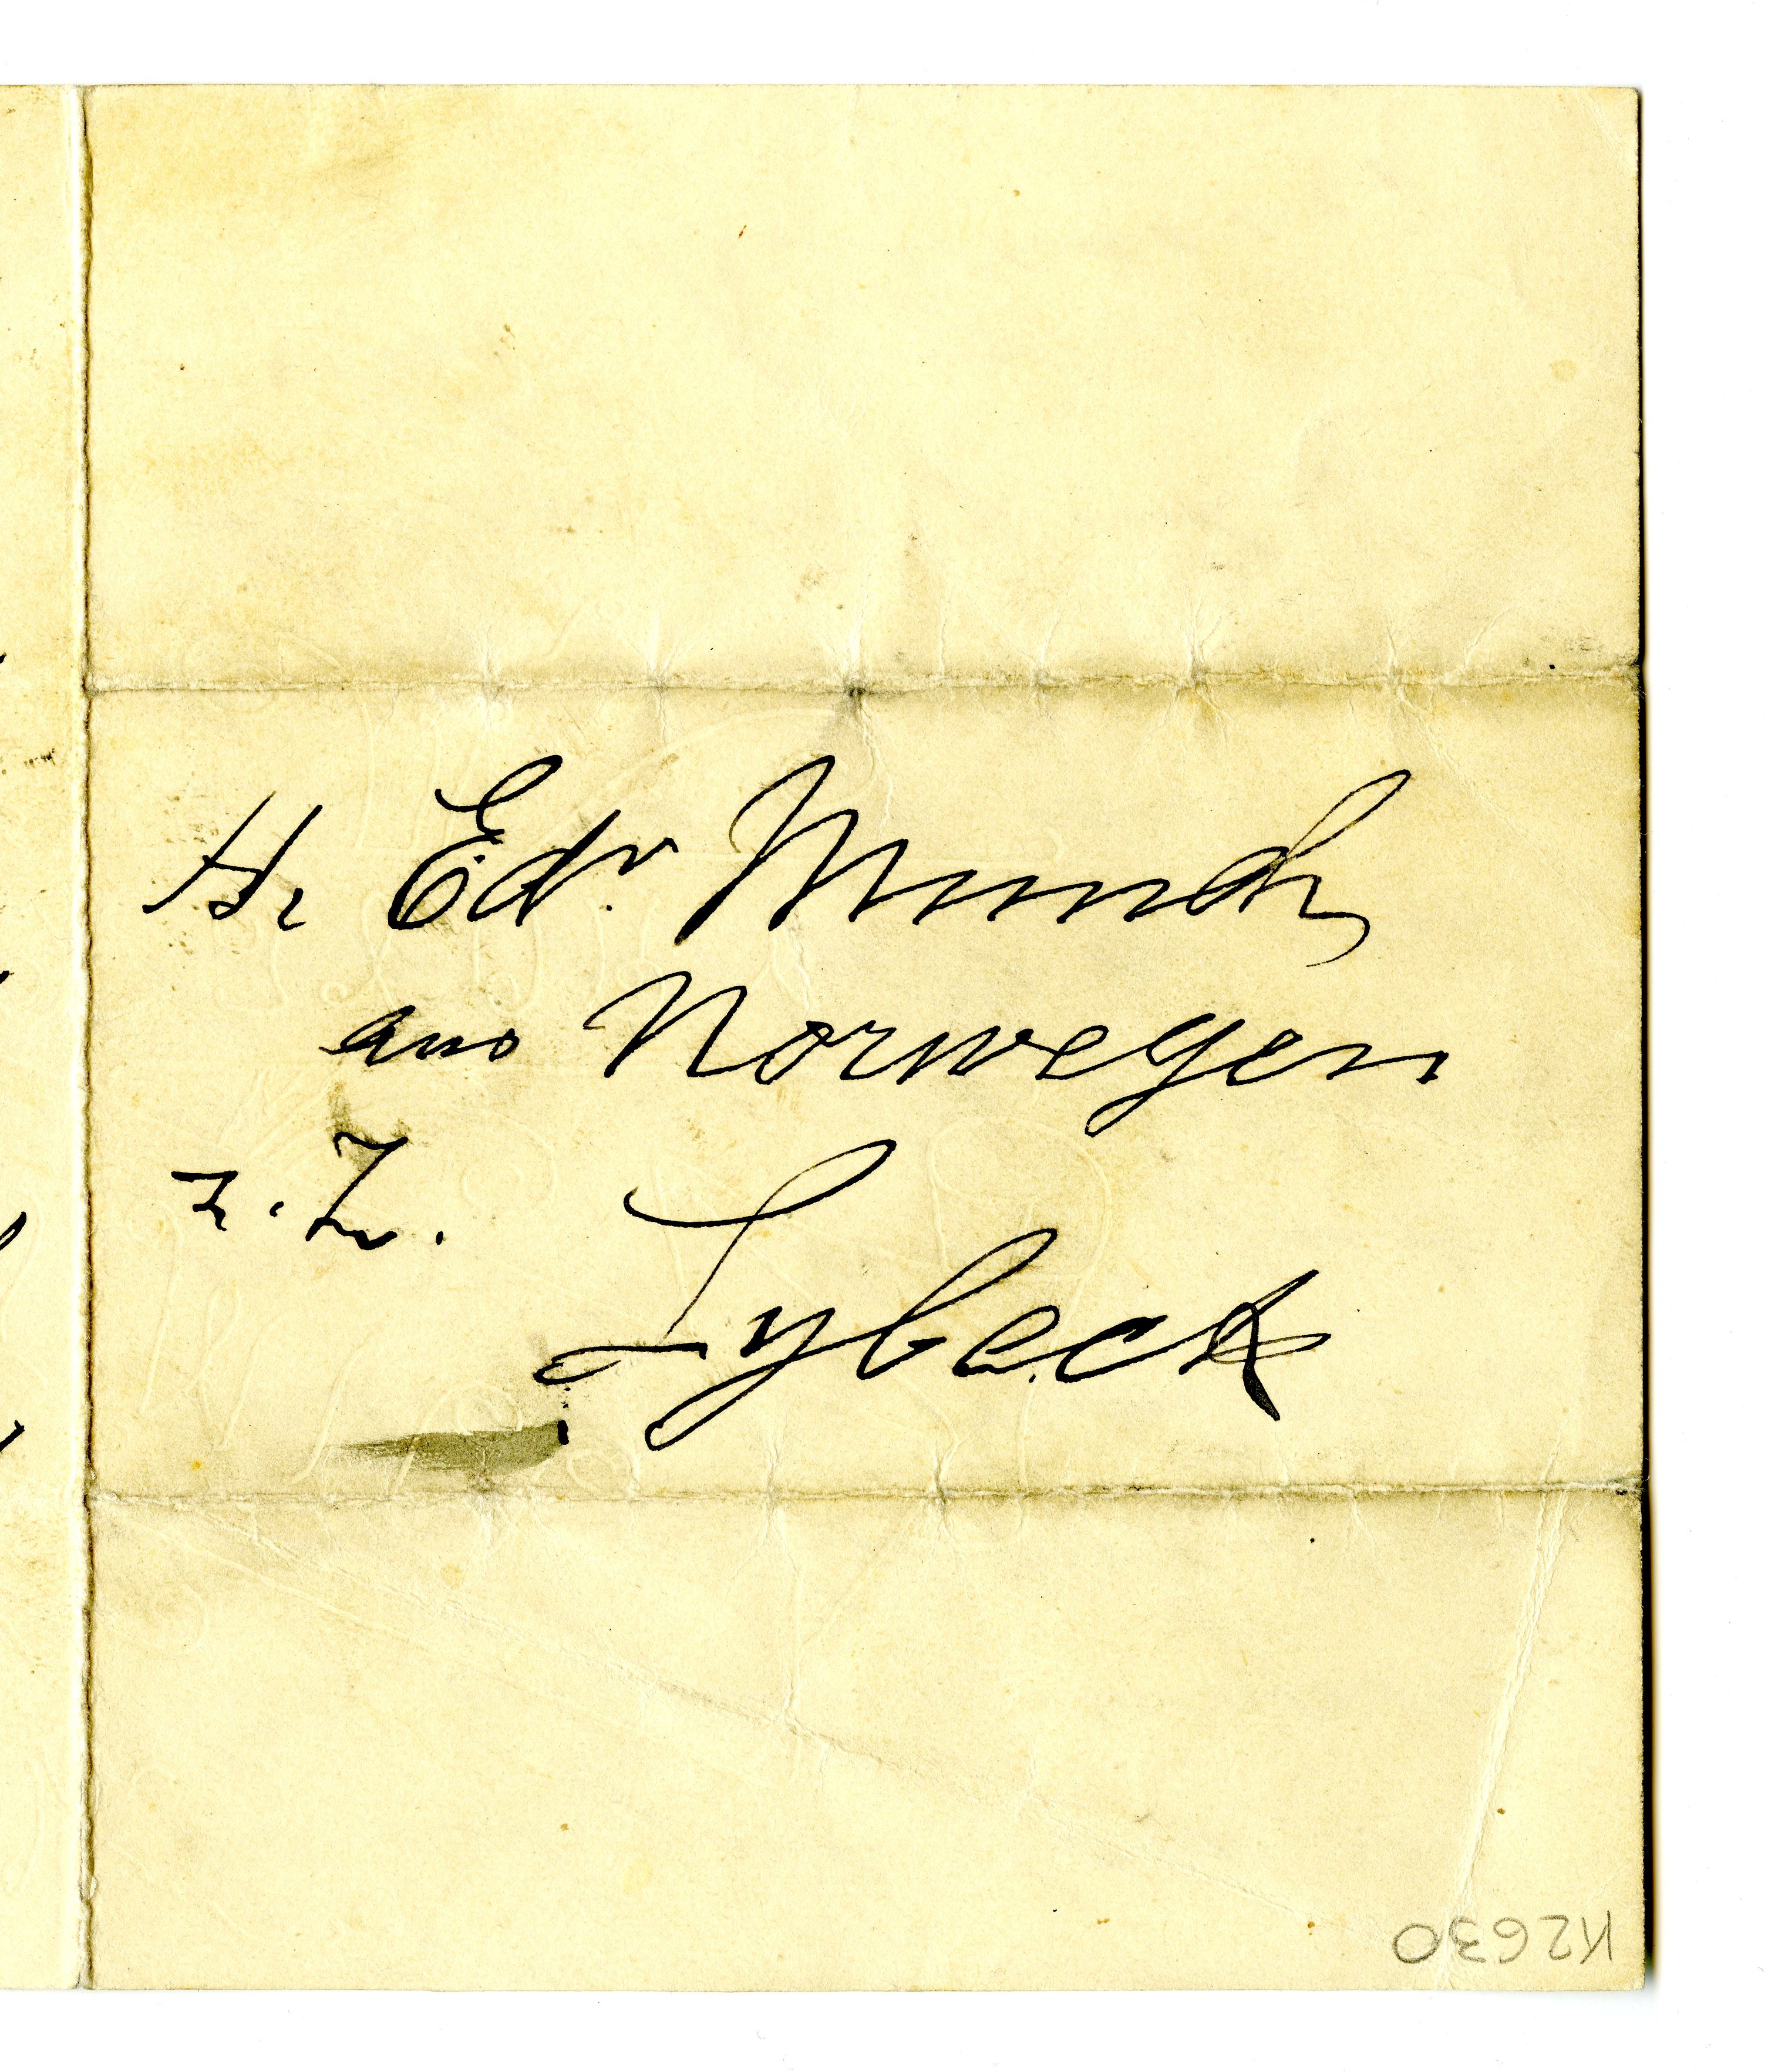 Hr Edv. Munch
aus Norwegen
z. Z.
Lybeck
K2630